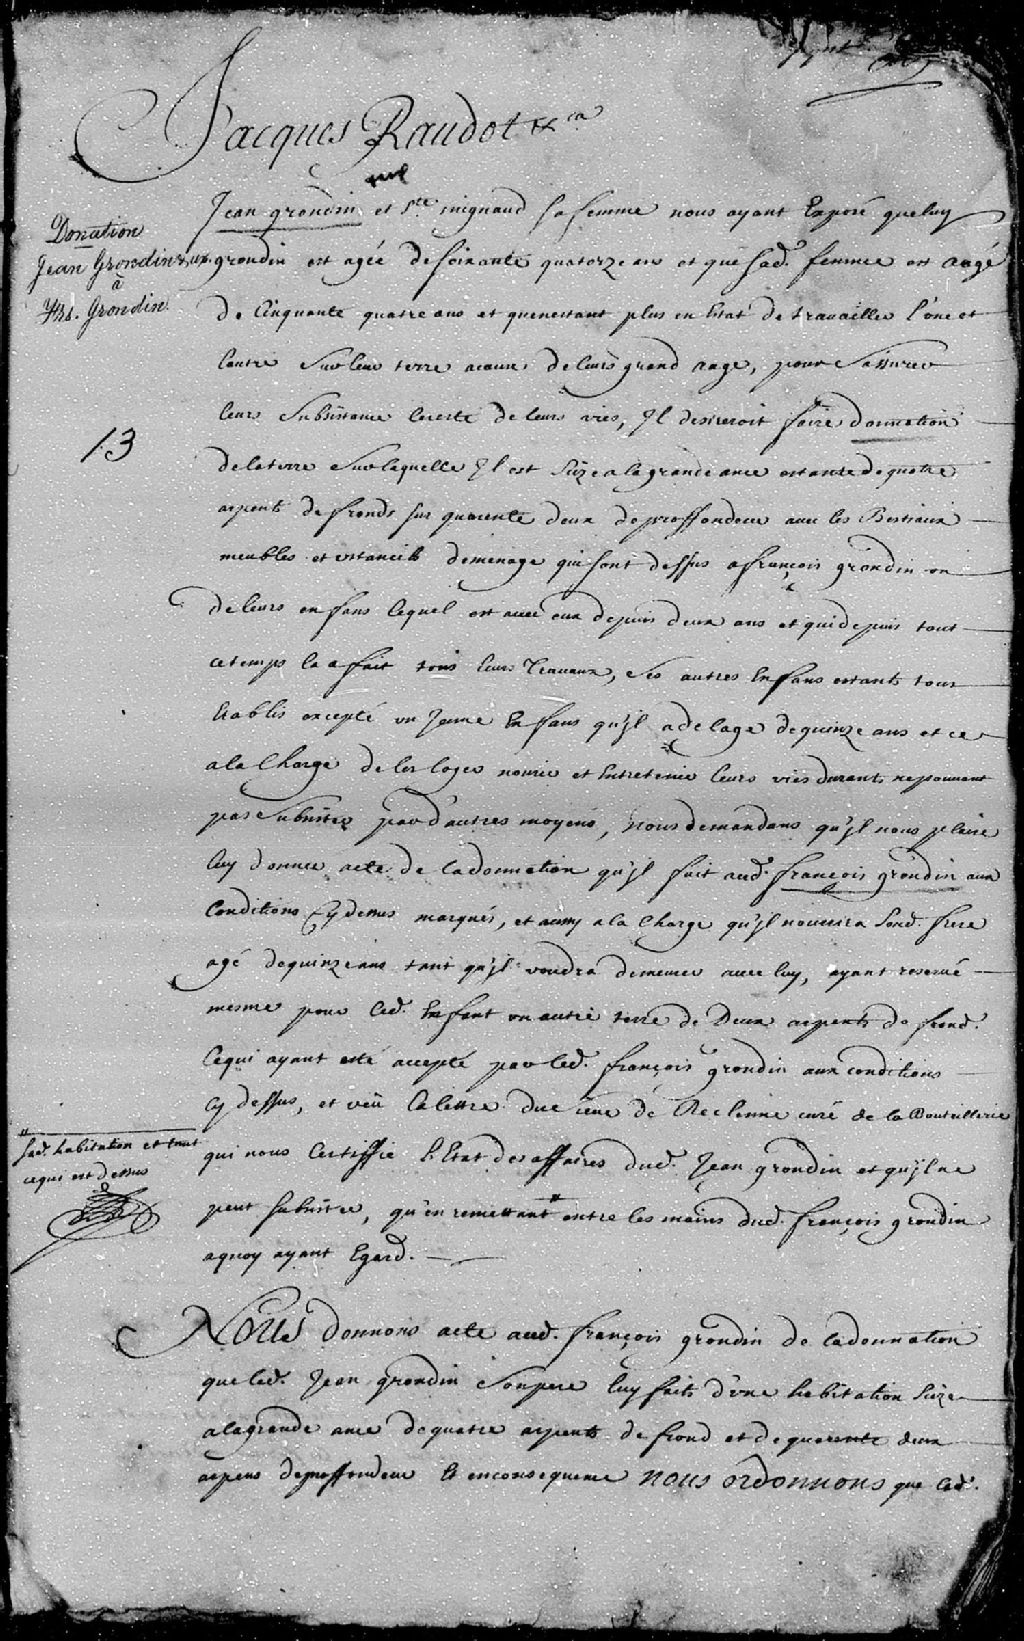 Jacques Raudot &ca
Jean grondin et Ste mignaud sa femme nous ayant Exposé queluy
Donation
Jean Grondin & ux.
à
Frs. Grondin
grondin est agée desoixante quatorze ans et que sad. femme est aagé
de Cinquante quatre ans et quenestant plus en Estat de travailler l'une et
lautre sur leur terre acause de leurs grand aage, pour sassurer
leurs subsistance lereste de leurs vies, Il desireroit faire donnation
13
delaterre sur laquelle Il est size a lagrande ance estante de quatre
arpents de fronds sur quarente deux de proffondeur avec les Bestiaux
meubles et ustancils demenage qui sont dessus a françois grondin un
de leurs enfans lequel est avec eux depuis deux ans et qui depuis tout
cetemps la a fait tous leurs travaux, ses autres Enfans estants tous
Etablis excepté un Jeune Enfans qu'jl a de lage de quinze ans et ce
a la Charge de les loger nourir et Entretenir leurs vies durants ne pouvant
pas subsister par d'autres moyens, nous demandans qu'jl nous plaise
luy donner acte de la donnation qu'jl fait aud. françois grondin aux
Conditions Cy dessus marqués, et aussy a la Charge qu'jl nourrira sond. frere
agé de quinze ans tant qu'jl voudra demeurer avec luy, ayant reservé
mesme pour led. Enfant un autre terre de Deux arpents de frond.
Ce qui ayant esté accepté par led. françois grondin aux conditions
cy dessus, et veü la lettre du sieur de Reclenne curé de la Bouteillerie
sad. habitation et tout
cequi est dessus
qui nous Certiffie l'Etat des affaires dud. Jean grondin et qu'jl ne
peut subsister, qu'en remettant * entre les mains dud. françois grondin
aquoy ayant Egard.
Nous donnons acte aud. françois grondin de ladonnation
que led. Jean grondin son pere luy faits d'une habitation size
a lagrande ance de quatre arpents de frond et de quarente deux
arpens de proffondeur Et enconsequence nous ordonnons que led.